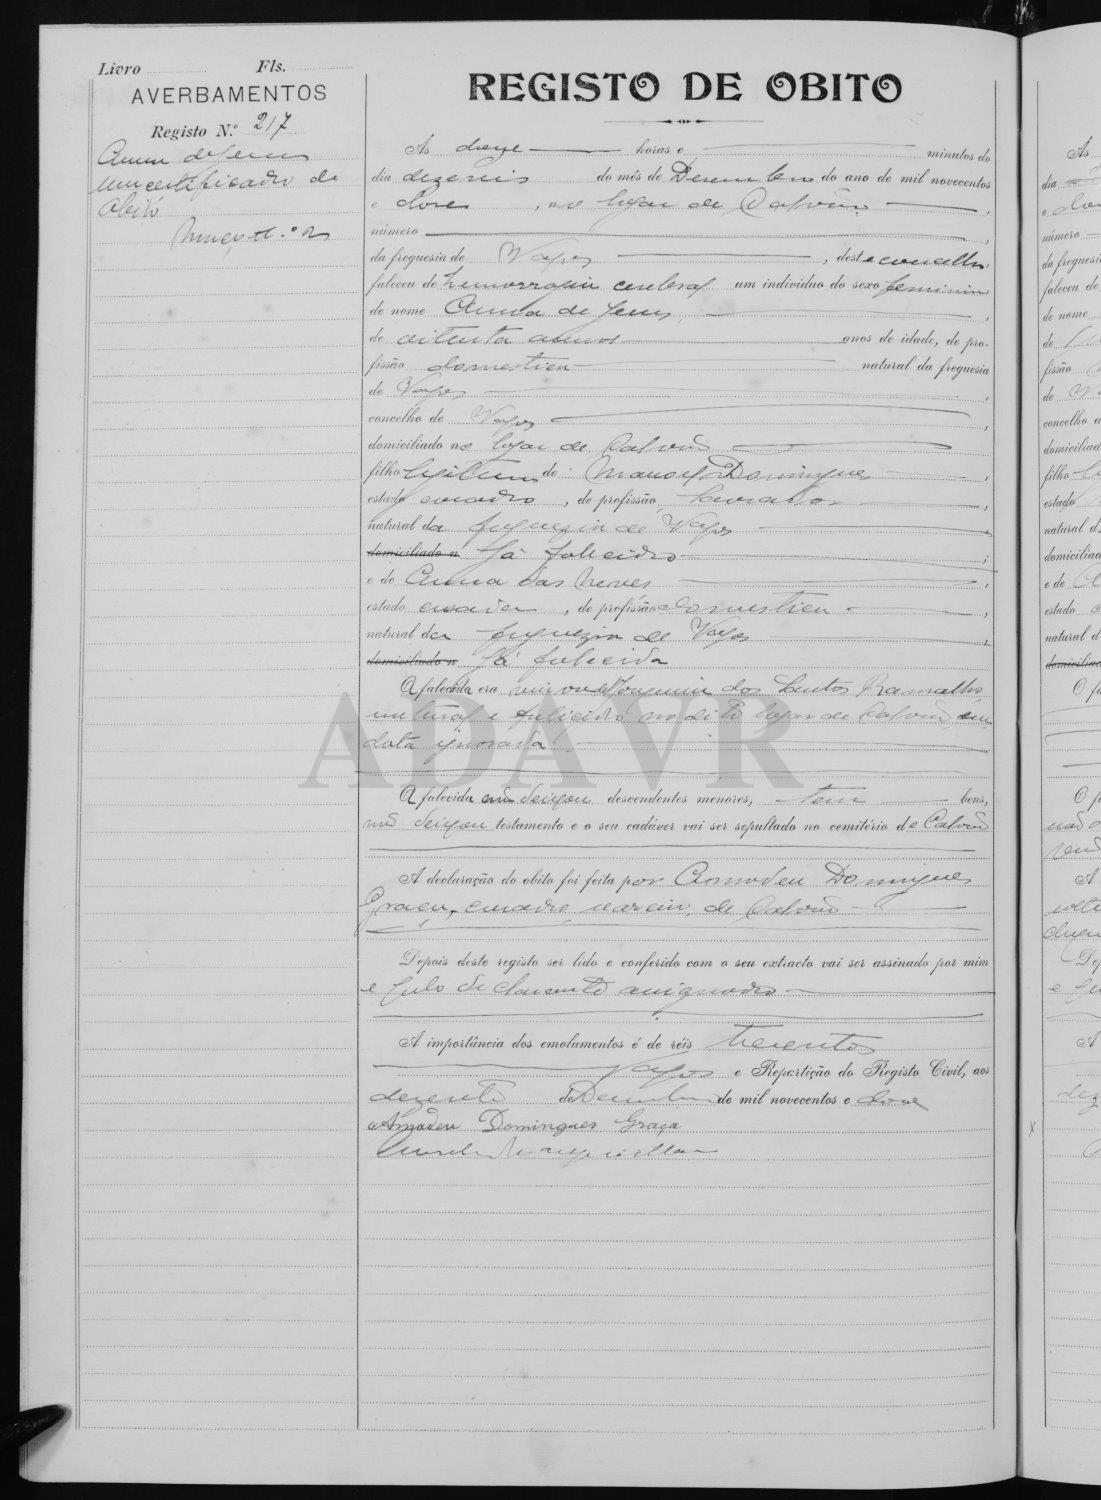 Livro Fls.
AVERBAMENTOS
Registo N.º 217
Anna de Jesus
um certificado de
obito
Maço n.º 2
REGISTO DE OBITO
Às doze horas e minutos do
dia dezeseis do mês de Dezembro do ano de mil novecentos
e doze, no lugar de Calvão,
número,
da freguesia de Vagos, deste concelho,
faleceu de hemorragia cerebral um individuo do sexo feminino
de nome Anna de Jesus,
de oitenta annos anos de idade, de pro-
fissão domestica natural da freguesia
de Vagos,
concelho de Vagos,
domiciliado no lugar de Calvão
filho legitimo de Manoel Domingues,
estado casado, de profissão lavrador,
natural da freguezia de Vagos
domiciliado n Já falecido;
e de Anna das Neves,
estado casada, de profissão domestica,
natural da freguezia de Vagos,
domiciliado n Já falecida
A falecida era viuva de Joaquim dos Santos Ramalho,
natural e falecido no dito lugar de Calvão em
data ignorada
A falecida não deixou descendentes menores, tem bens,
não deixou testamento e o seu cadáver vai ser sepultado no cemitério de Calvão
A declaração do obito foi feita por Amadeu Domingues
Graça, casado, de Calvão
Depois deste registo ser lido e conferido com o seu extracto vai ser assinado por mim
e pelo declarante
A importância dos emolumentos é de réis trezentos
Vagos e Repartição do Registo Civil, aos
dezesete de Dezembro de mil novecentos e doze
Amadeu Domingues Graça
ADAVR